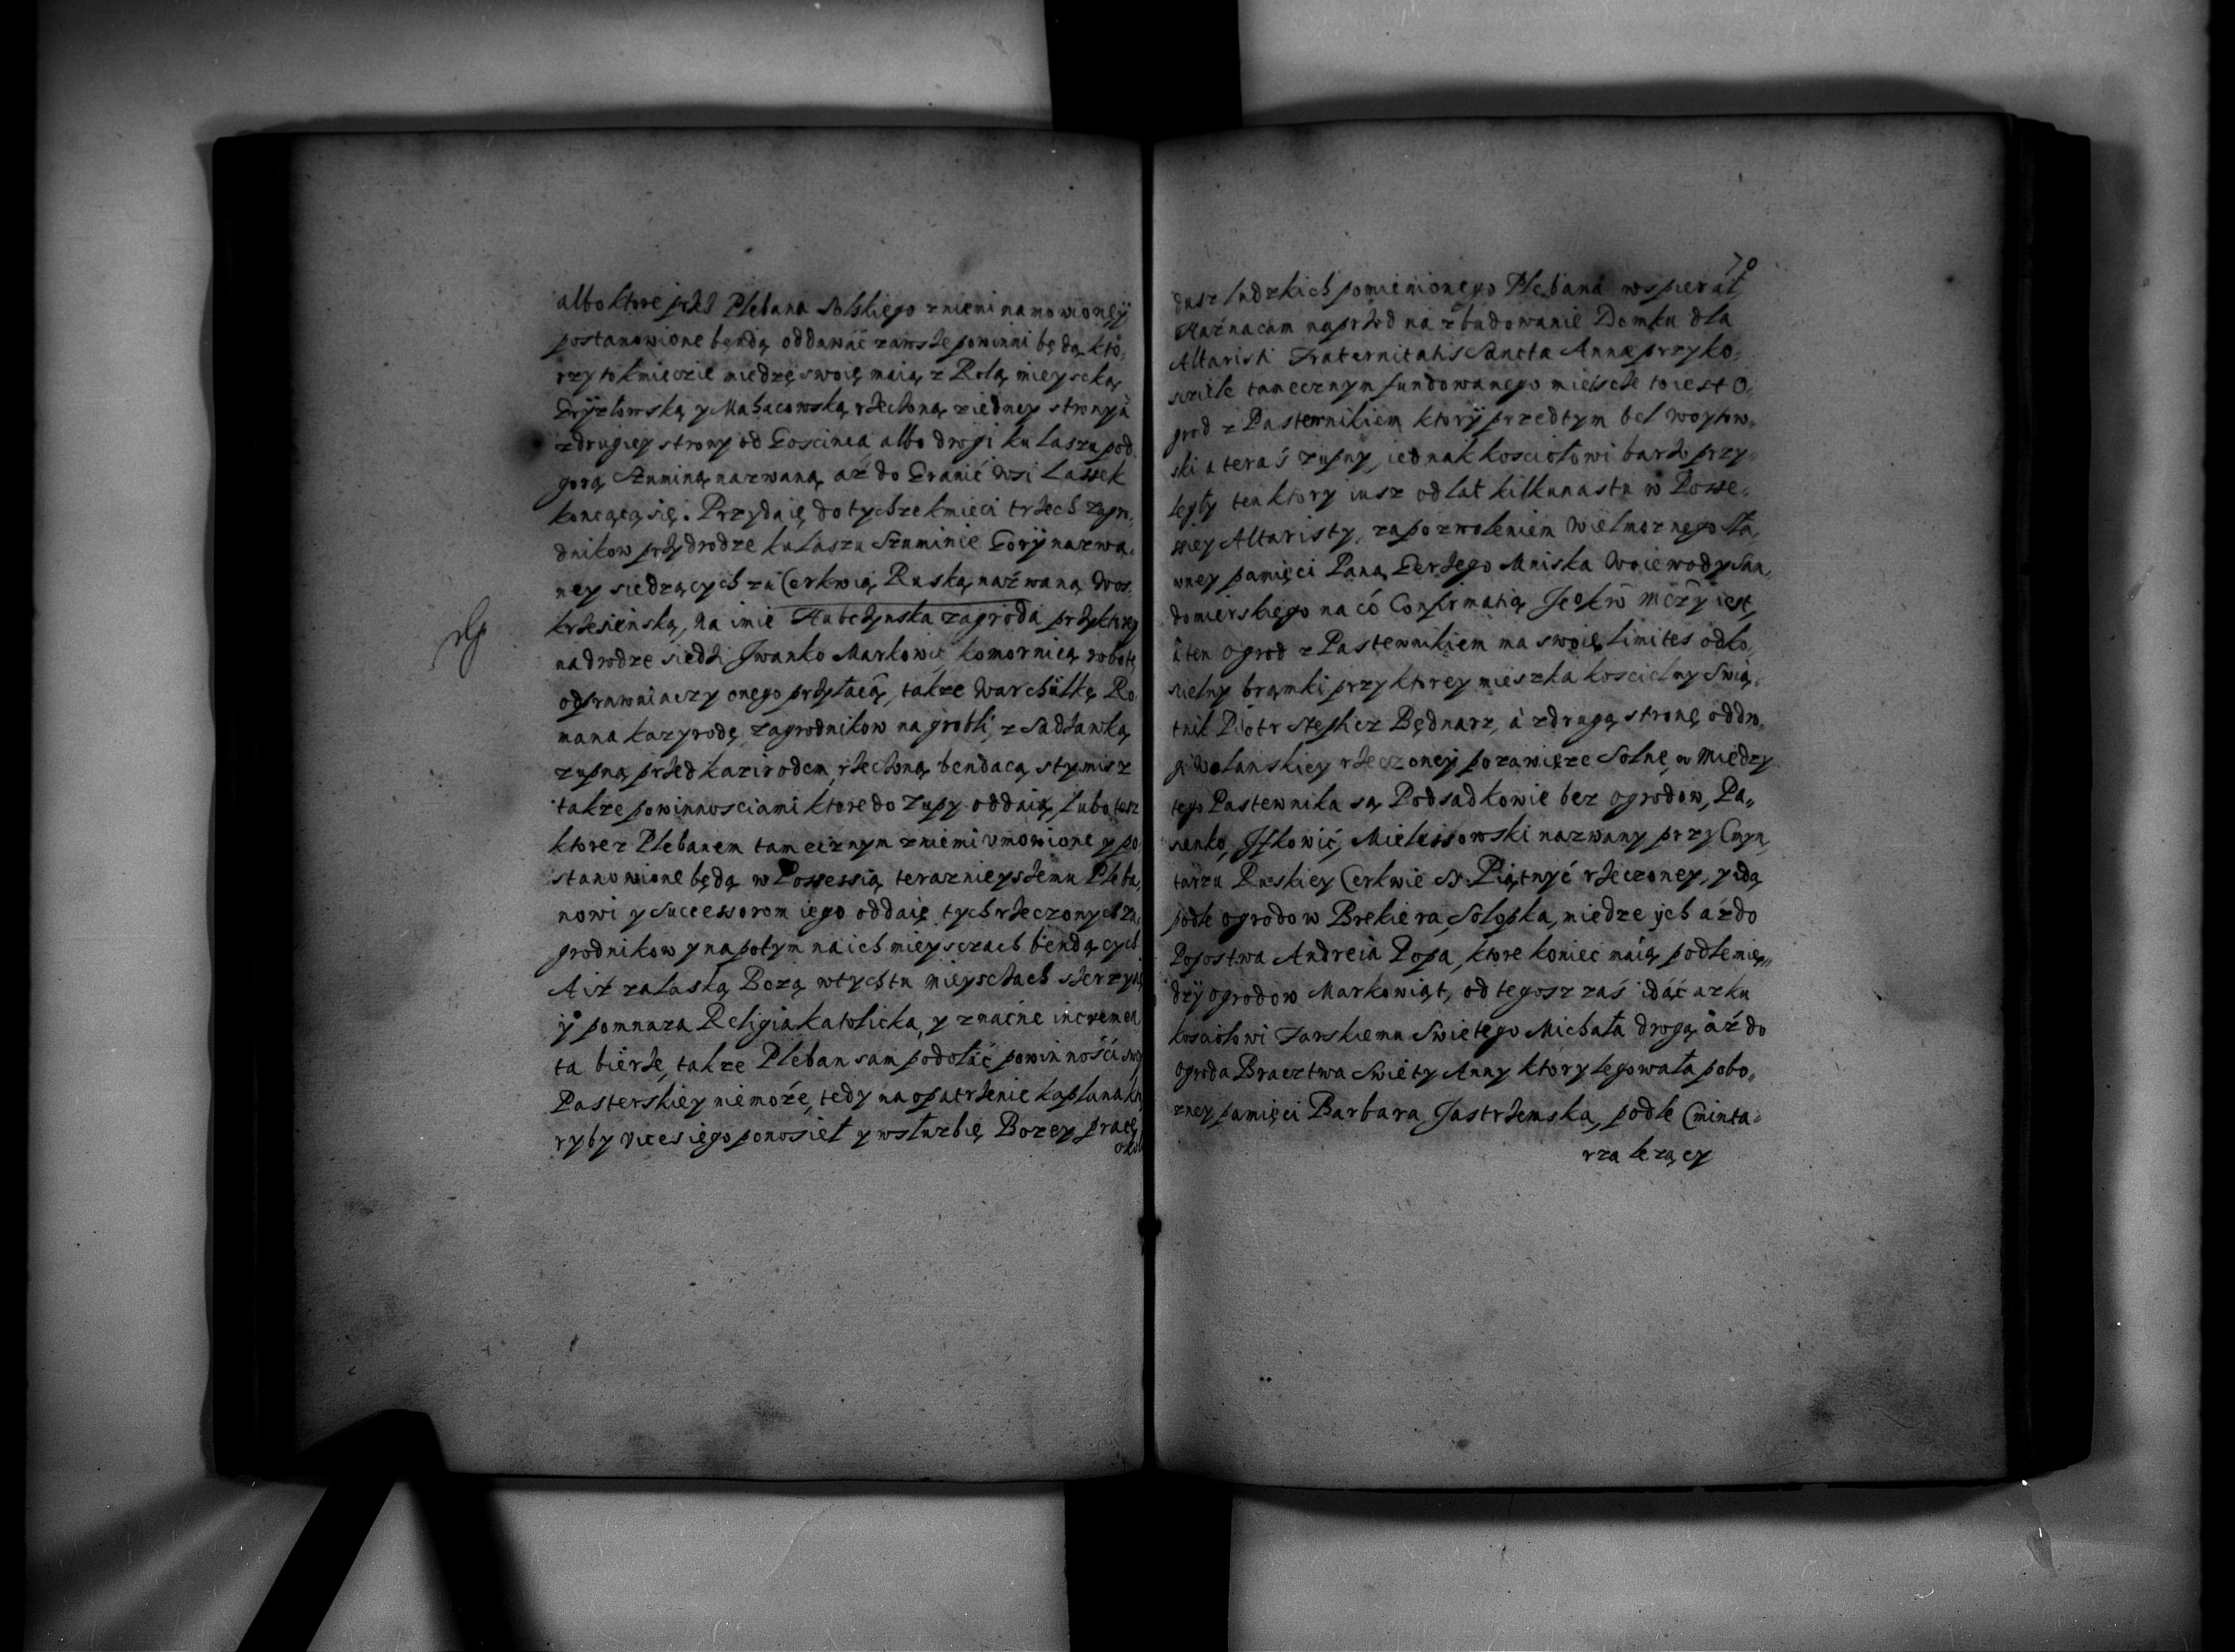 albo ktore przes Plebana Solskiego z niemi namowioney
postanowione bendą oddawać zawsze powinni będą, kto,
rzy to kmieczie miedzę swoię maią z Rolą mieyscką
Gryzłowską y Mahacowską rzeczoną z iedney strony à
z drugiey strony od Goscinca albo drogi ku Laszu pod
gorą Szuminą nazwaną aż do Granić Wsi Lassek
koncącą się. Przydaię do tychze kmieci trzech zagro,
dnikow przy drodze ku Laszu Szuminie Gory nazwa,
ney siedzących za Cerkwią Ruską nazwaną Wos,
krzesienską, na imie Hubczynska zagroda przy ktorey
na drodze siedzi Jwanko Markowic, komornicą robotę
odprawuiaczy onego przyłacą, takze Warchułkę Ro,
mana kazyrodę, zagrodnikow na grobli, z Sadzawką
zupną przed kazirodem rzeczoną bendacą s tymisz
takze powinnosciami ktore do Zupy oddaią, lubo tesz
ktore z Plebanem tamecznym z niemi umowione y po
stanowione będą w Possessią teraznieyszemu Pleba,
nowi y Successorom iego oddaię tych rzeczonych za,
grodnikow y na potym na ich mieysczach bendących
A iż za łaską Bozą w tychtu mieysczach szerzy się
y pomnaza Religia katolicka, y znaćne incremen
ta bierze, takze Pleban sam podołać powinnośći swey
Pasterskiey niemoże, tedy na opatrzenie kapłana kto
ryby vices iego ponosieł y w słuzbię Bozey pracę
około
70
dusz ludzkich pomienionego Plebana wspierał,
Naznacam naprzod na zbudowanie Domku dla
Altaristi Fraternitatis Sancta Annæ przy ko,
sciele tamecznym fundowanego mieiscze to iest O,
grod z Pastewnikiem ktory przedtym beł woytow,
ski a teraś zupny, iednak kosciołowi bardzo przy,
legły ten ktory iusz od lat kilkunastu w Posse,
ssiey Altaristy, za pozwoleniem Wielmoznego sła,
wney pamięci Pana Gerzego Mniska Woiewody San,
domierskiego na có Confirmatią Je° kro Mczy iest,
à ten Ogrod z Pastewnikiem ma swoię limites od ko,
scielny brąmki przy ktorey mieszka koscielny Swią,
tnik Piotr Stephicz Będnarz, à z drugą stronę od dro,
gi Wolanskiey rzeczoney po zawięze Solne, w miedzy
tego Pastewnika są Podsadkowie bez ogrodow, Pa,,
senko, Jfkowić, Mielessowski nazwany przy Cmyn,
tarzu Ruskiey Cerkwie S. Piątnyć rzeczoney, y idą
podle ogrodow Brekiera, Solopka, miedze ych aż do
Popostwa Andreia Popa, ktore koniec maią podle mię,,
dzy ogrodow Markowiąt, od tegosz zaś idąć az ku
kosciołowi Farskiemu Swiętego Michała drogą aż do
ogroda Bractwa Swięty Anny ktory legowała pobo,
zney pamięci Barbara Jastrzemska, podle Cminta,
rza lezący